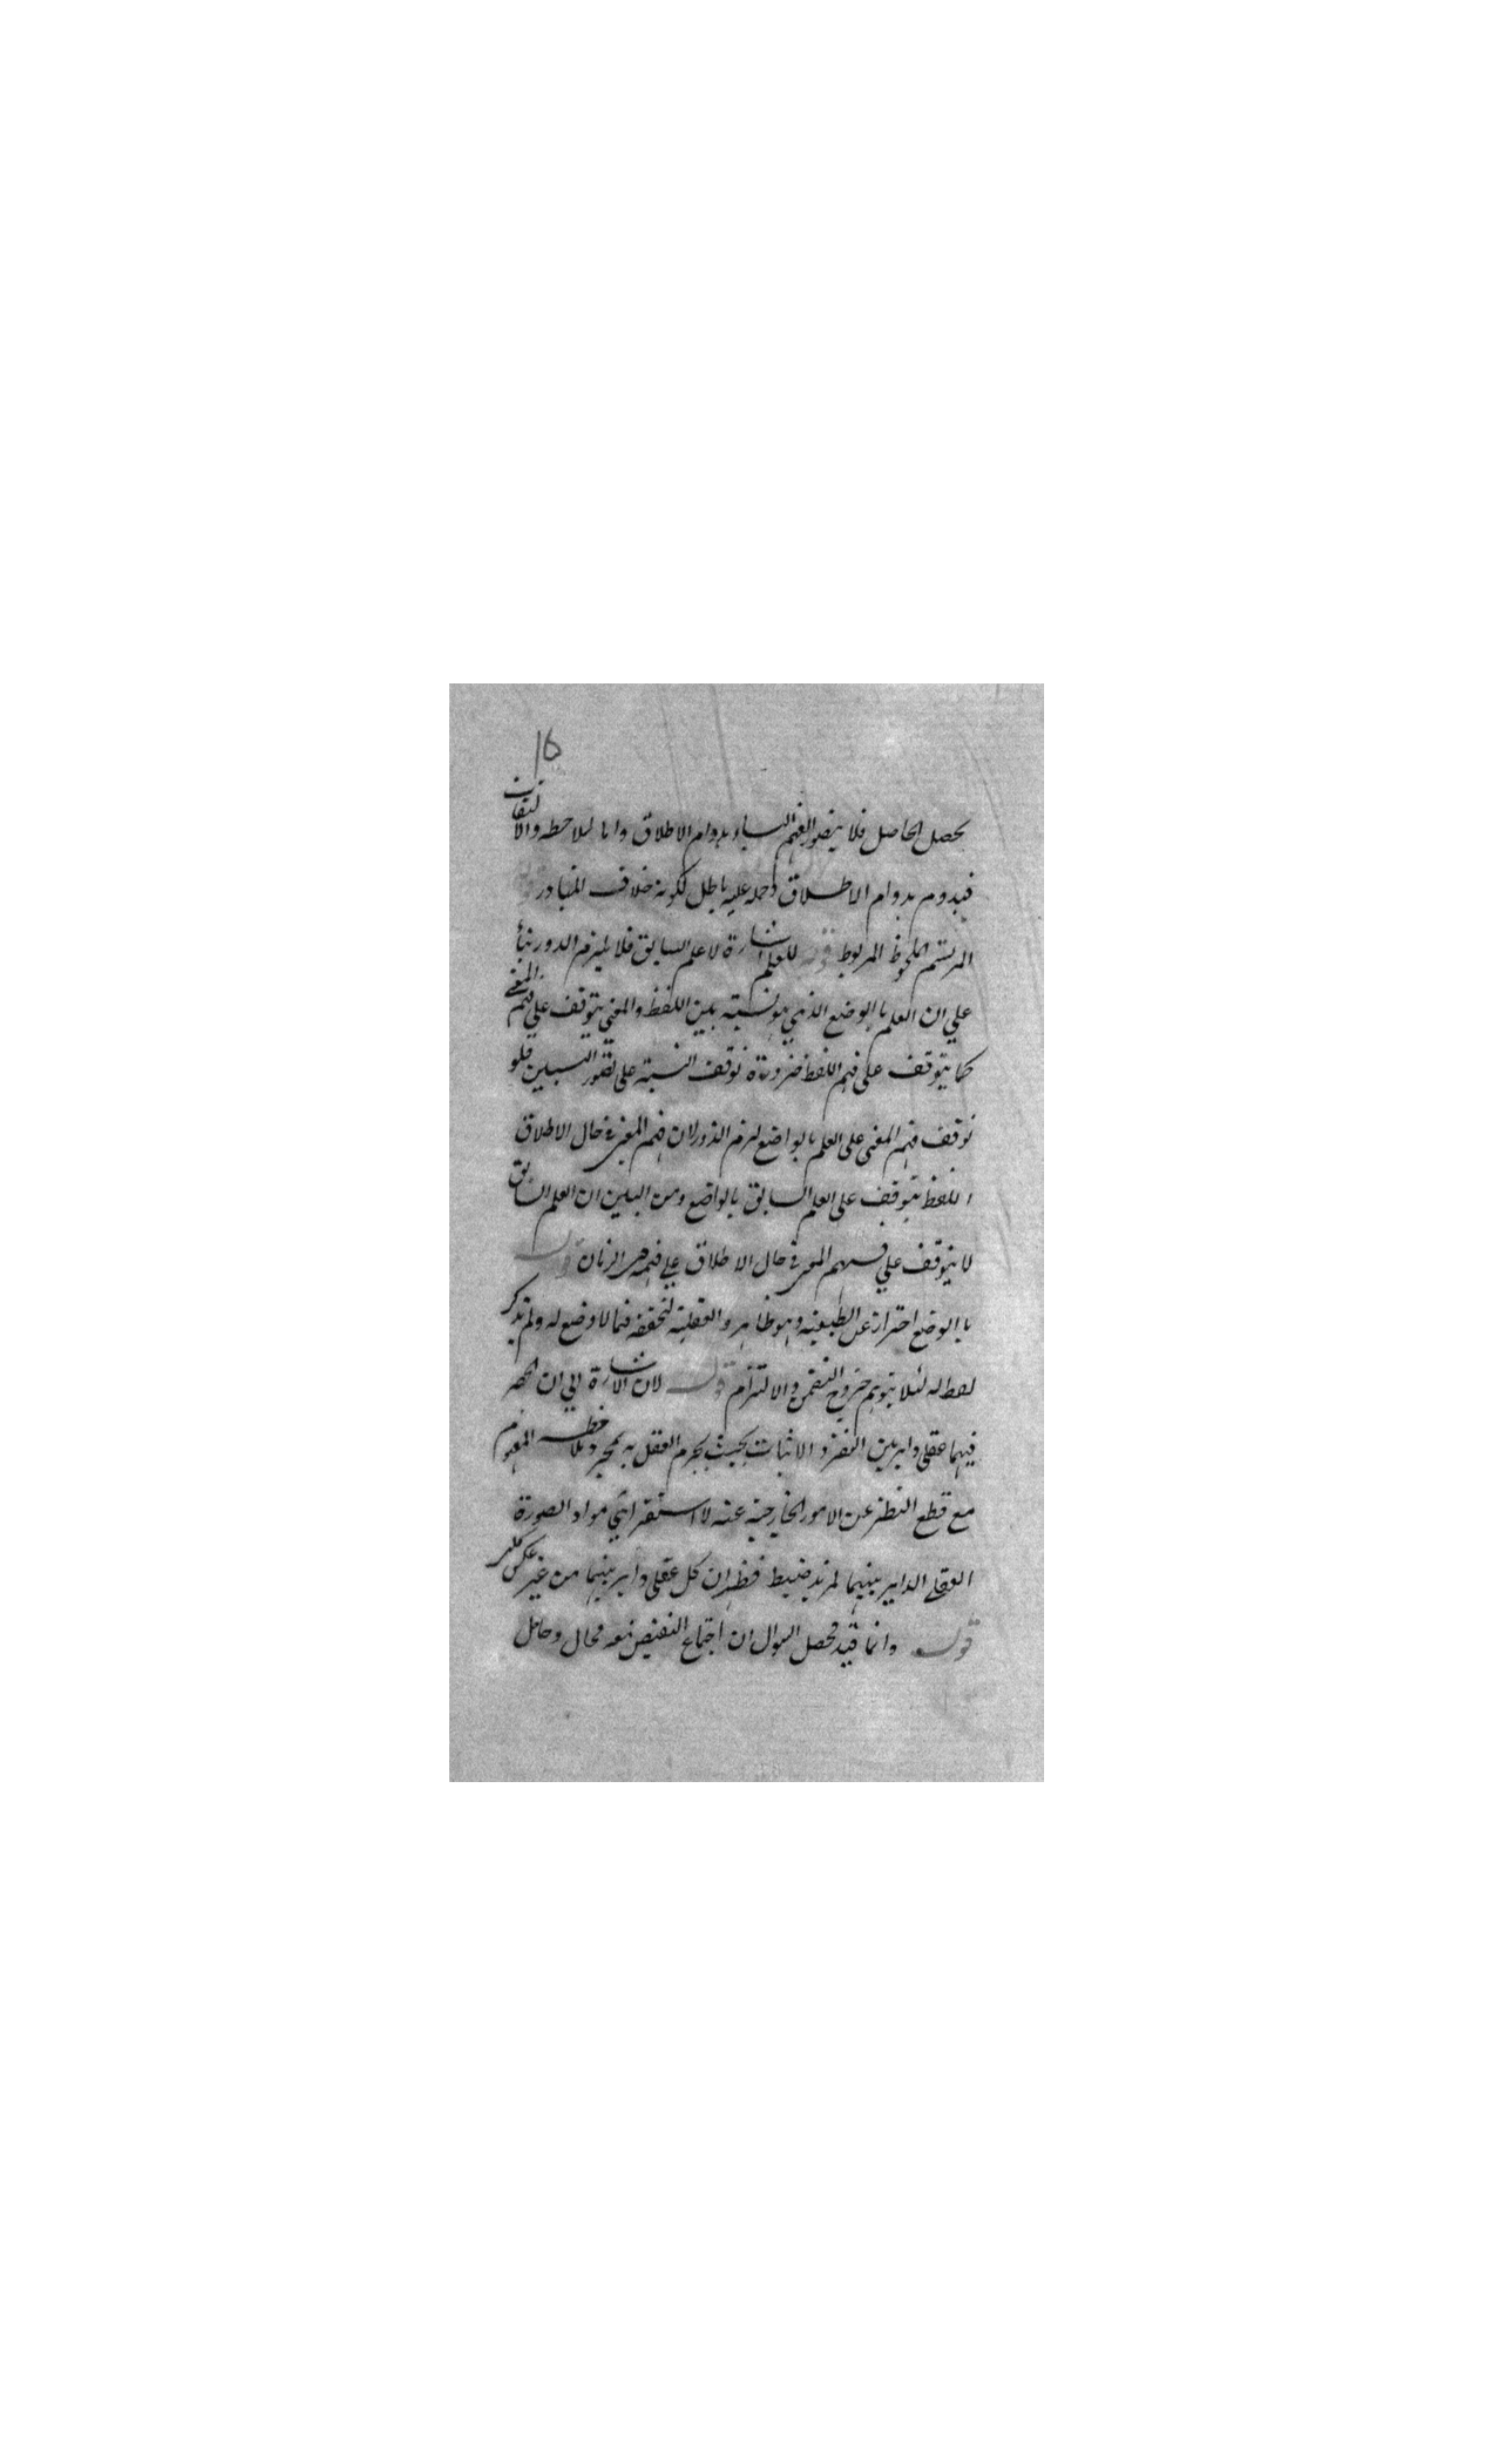 ١٥
يحصل الحاصل فلا يتصور الفهم بدوام الاطلاق واما الملاحظة والالتفات
فيدوم بدوام الاطلاق وحمله عليه باطل لكونه خلاف المتبادر
المرتسم الملحوظ المربوط قوله للعلم اشارة لا علم السابق فلا يلزم الدور بناء
علي ان العلم بالوضع الذي هو نسبة بين اللفظ والمعني يتوقف علي فهم المعني
كما يتوقف علي فهم اللفظ ضرورة توقف النسبة علي تصور المنتسبين فلو
توقف فهم المعني علي العلم بالواضع لزم الدور لان فهم المعني في حال الاطلاق
اللفظ يتوقف علي العلم السابق بالواضع ومن البين ان العلم السابق
لا يتوقف علي فهم المعني في حال الاطلاق علي فهمه الزمان قوله
باالوضع احتراز عن الطبعية وهو ظاهر والعقلية لتحققه فيما لا وضع له ولم يذكر
لفظ له لئلا يتوهم خروج التضمن والالتزام قوله لان الاشارة الي ان الحصر
فيهما عقلي داير بين النفي والاثبات بحيث يجزم العقل به بمجرد ملاحظة المفهوم
مع قطع النظر عن الامور الخارجية عنه لا استقرائي مواد الصورة
العقلي الداير بينهما لمزيد ضبط فظهر ان كل عقلي داير بينهما من غير عكس كلي
قوله وانما قيد محصل السوال ان اجتماع النقيضين نفسه محال وحاصل